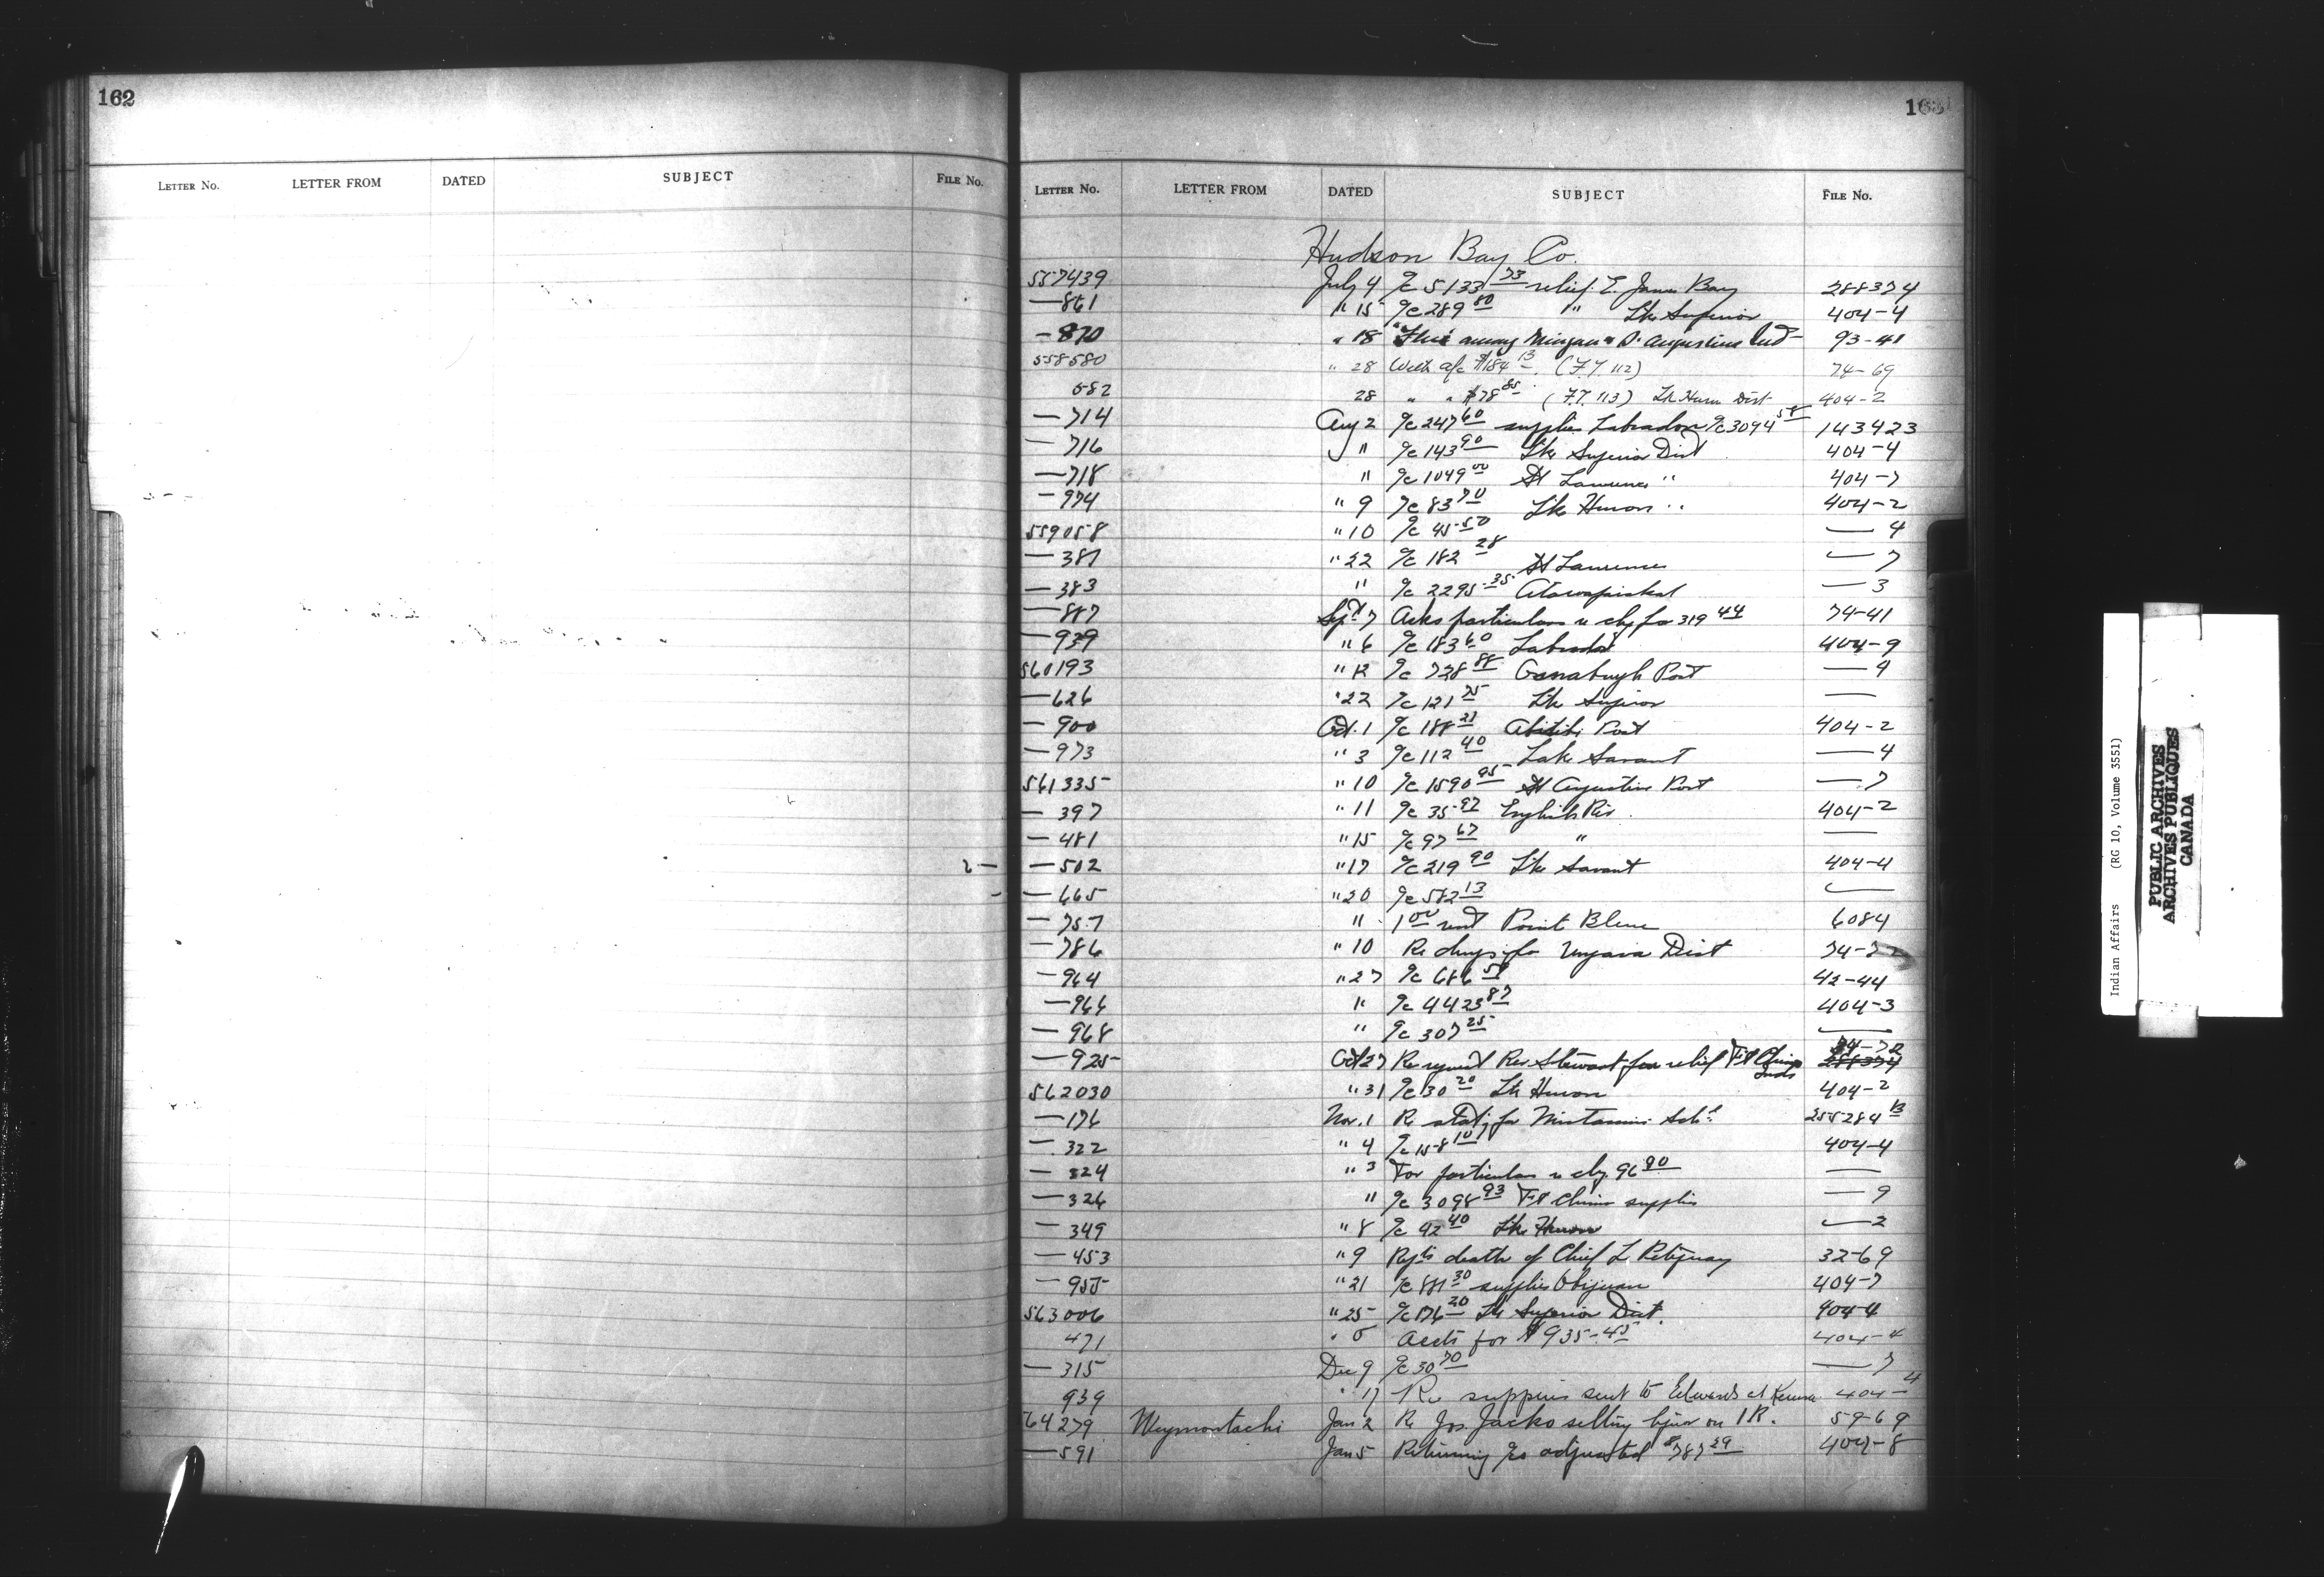 162
LETTER NO. LETTER FROM DATED SUBJECT FILE No.
163
LETTER NO. LETTER FROM DATED SUBJECT FILE No.
Hudson Bay Co.
557439 July 4 a/c 5133 73 relief E. James Bay 288374
— 861 " 15 a/c 289 80 " Lke Superior 404-4
— 870 " 18 "Flu" among Mingan & St Augustine Ind— 93-41
558580 " 28 With a/c $184 13. (F.T. 112) 74-69
682 28 " " $78 85 (F.T. 113) Lk Huron Dist 404-2
— 714 Aug 2 a/c 247 60 supplies Labrador a/c 3094 58 143423
— 716 " a/c 143 90 Lke Superior Dist 404-4
— 718 " a/c 1049 00 St Lawrence " 404-7
— 974 " 9 a/c 83 70 Lke Huron " 404-2
559058 " 10 a/c 45.50 — 4
— 381 " 22 a/c 182 28 St Lawrence — 7
— 383 " a/c 2295.35 Attawapiskat — 3
— 887 Sept 7 Asks particulars re chq for 319 44 74-41
— 939 " 6 a/c 183 60 Labrador 404-9
560193 " 12 a/c 728 88 Osnaburgh Post — 4
— 626 " 22 a/c 121 75 Lke Superior —
— 900 Oct. 1 a/c 188 21 Abitibi Post 404-2
— 973 " 3 a/c 112 40 Lake Savant — 4
561335 " 10 a/c 1590 95 St Augustine Post — 7
— 397 " 11 a/c 35.92 English Riv. 404-2
— 481 " 15 a/c 97 67 " —
2 — — 502 " 17 a/c 219 90 Lke Savant 404-4
- — 665 " 20 a/c 582 13 —
— 757 " 1 00 rent Point Bleue 6084
— 786 " 10 Re drugs for Ungava Dist 74-72
— 964 " 27 a/c 686 51 42-44
— 966 " a/c 4423 87 404-3
— 968 " a/c 307 25 —
— 925 Oct 27 Re request Rev Stewart for relief Ft Chimo Inds 74-72 288374
562030 " 31 a/c 30 20 Lk Huron 404-2
— 176 Nov. 1 Re stat'y for Mistassini Sch. 255284 13
— 322 " 4 a/c 158 10 404-4
— 324 " 3 For particulars re chq. 96 90 —
— 326 " a/c 3098 93 Ft Chimo supplies — 9
— 349 " 8 a/c 92 40 Lke Huron — 2
— 453 " 9 Repts death of Chief L. Petiquay 32-69
— 955 " 21 a/c 881 30 supplies Obijuan 404-7
563006 " 25 a/c 176 20 Lk Superior Dist. 404-4
471 " Accts for $935.45 404-4
— 315 Dec 9 a/c 30 70 — 7
939 " 17 Re supplies sent to Edwards at Kenora 404-4
64279 Weymontachi Jan 2 Re Jos. Jacko selling liquor on I R. 59-69
— 591 Jan 5 Returning a/cs adjusted $787 29 404-8
Indian Affairs (RG 10, Volume 3551)
PUBLIC ARCHIVES
ARCHIVES PUBLIQUES
CANADA